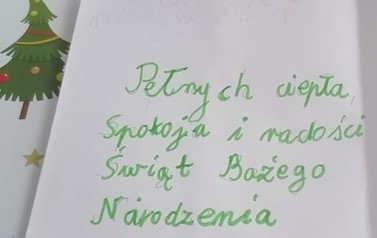 Pełnych ciepła,
Spokoju i radości
Świąt Bożego
Narodzenia